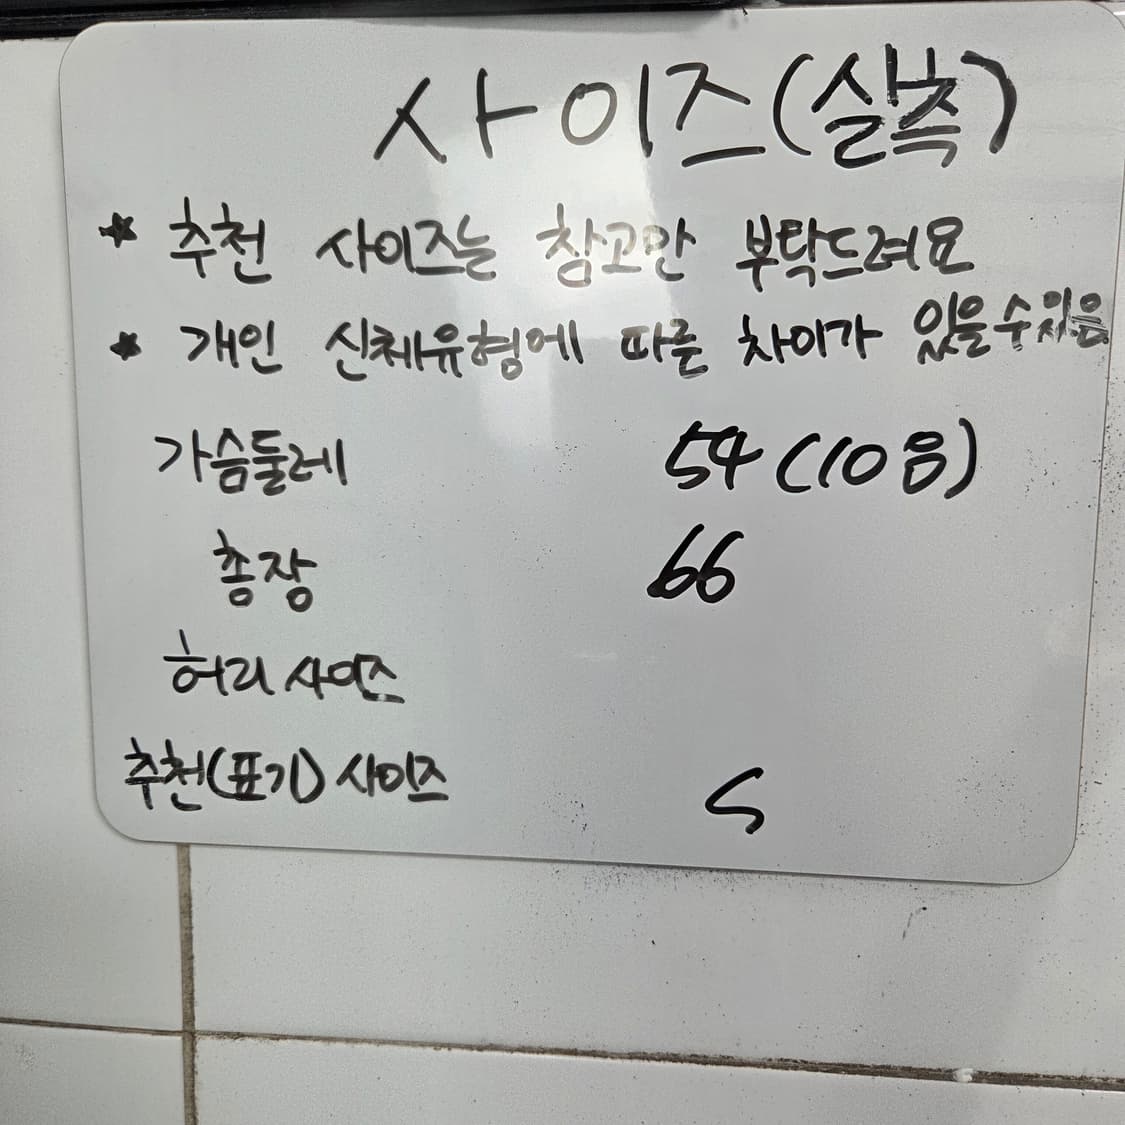 사이즈(실측)
* 추천 사이즈는 참고만 부탁드려요
* 개인 신체유형에 따른 차이가 있을수있음
가슴둘레 54(10음)
총장 66
허리 사이즈
추천(표기) 사이즈 S